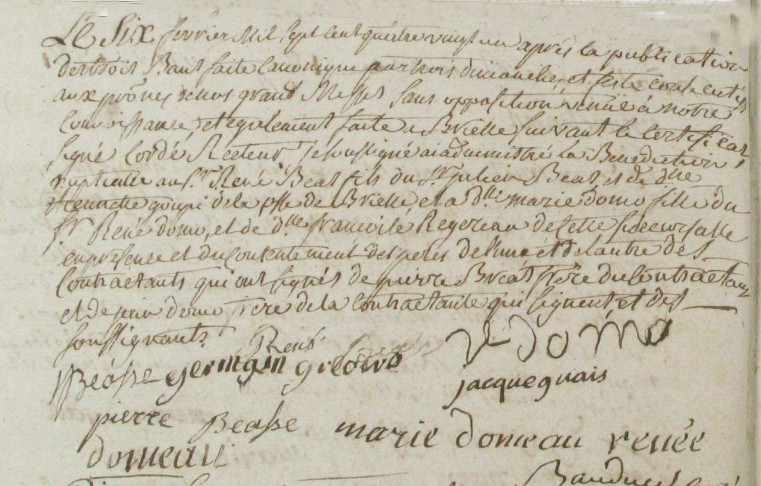 Le Six fevrier Mil Sept Cent quatre vingt un après la publication
des trois Bans faite Canonique par trois dimanches et feste consecutifs
aux prônes de nos grand Messes sans opposition venue à notre
Connoissance, et egalement faite a Brielle suivant le certificat
signé Cordé Recteur, Je soussigné ai administré la Benediction
nuptialle au Sr René Beas fils du Sr Julien Beas, et de dlle
goupi de la psse de Brielle et a dlle marie domo fille du
Sr René domo, et de dlle de cette succursalle
en presence et du Consentement des peres de l'une et de l'autre des
Contractants qui ont signés de pierre Beas frere du Contractant
et de jean domo frere de la Contractante qui signent et des
soussignants
René
Béasse germain r domo
jacque guais
pierre Beasse marie domeau renée
domeau